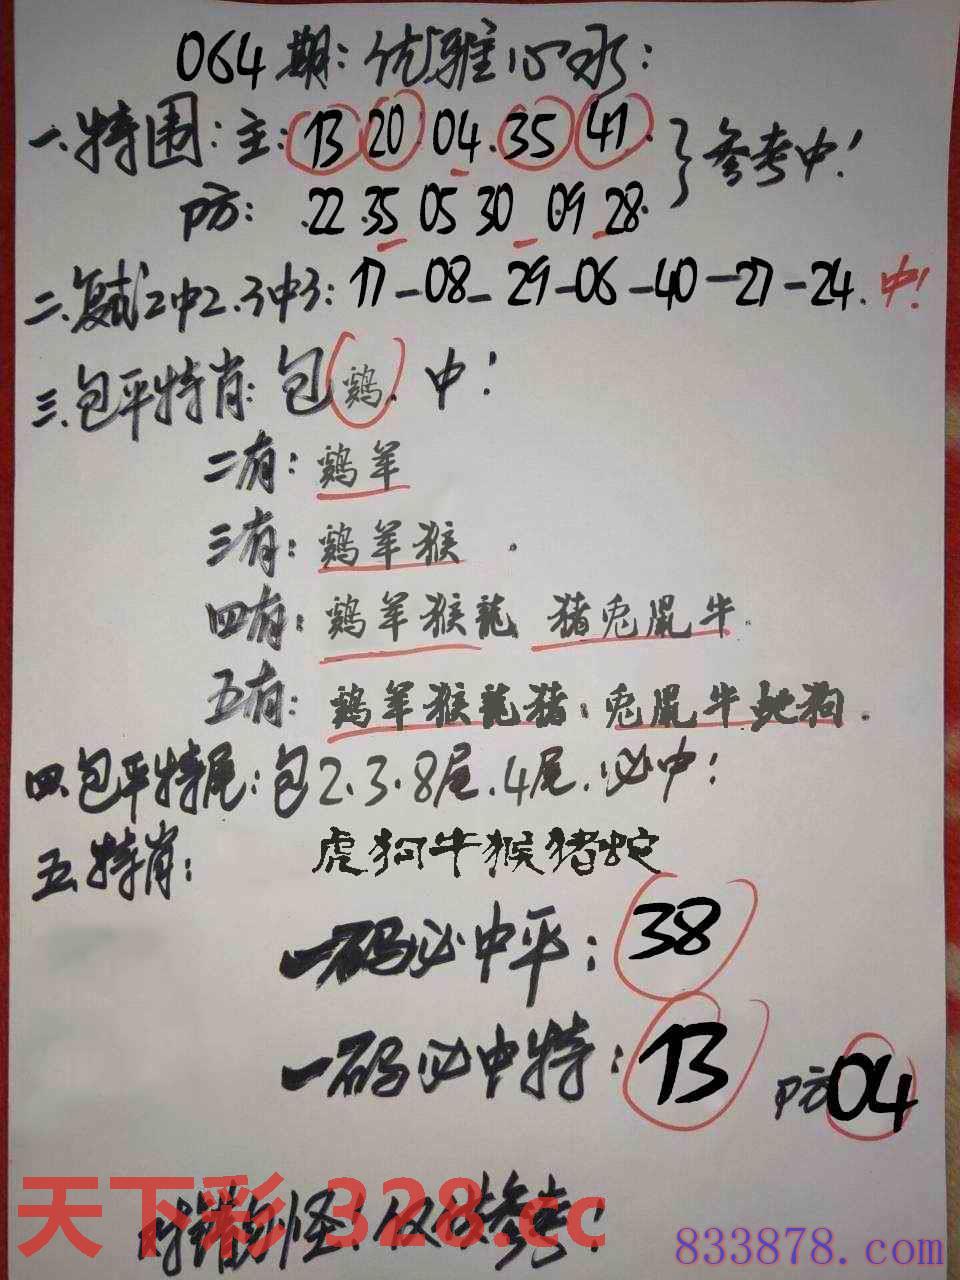 064期:优雅心水:
一.特围:主:13 20 04.35 41.
参考中!
防: .22 .35 05 30 09 28.
二.复式2中2.3中3:17-08-29-06-40-27-24.中!
三.包平特肖:包鸡.中!
二有:鸡羊
三有:鸡羊猴.
四有:鸡羊猴龍 猪兔鼠牛.
五有:鸡羊猴龍猪:兔鼠牛蛇狗.
四.包平特尾:包2.3.8尾.4尾.必中!
五.特肖: 虎狗牛猴猪蛇
一码必中平:38
一码必中特:13 防04
天下彩 328.cc
错勿怪!仅供参考!
833878.com